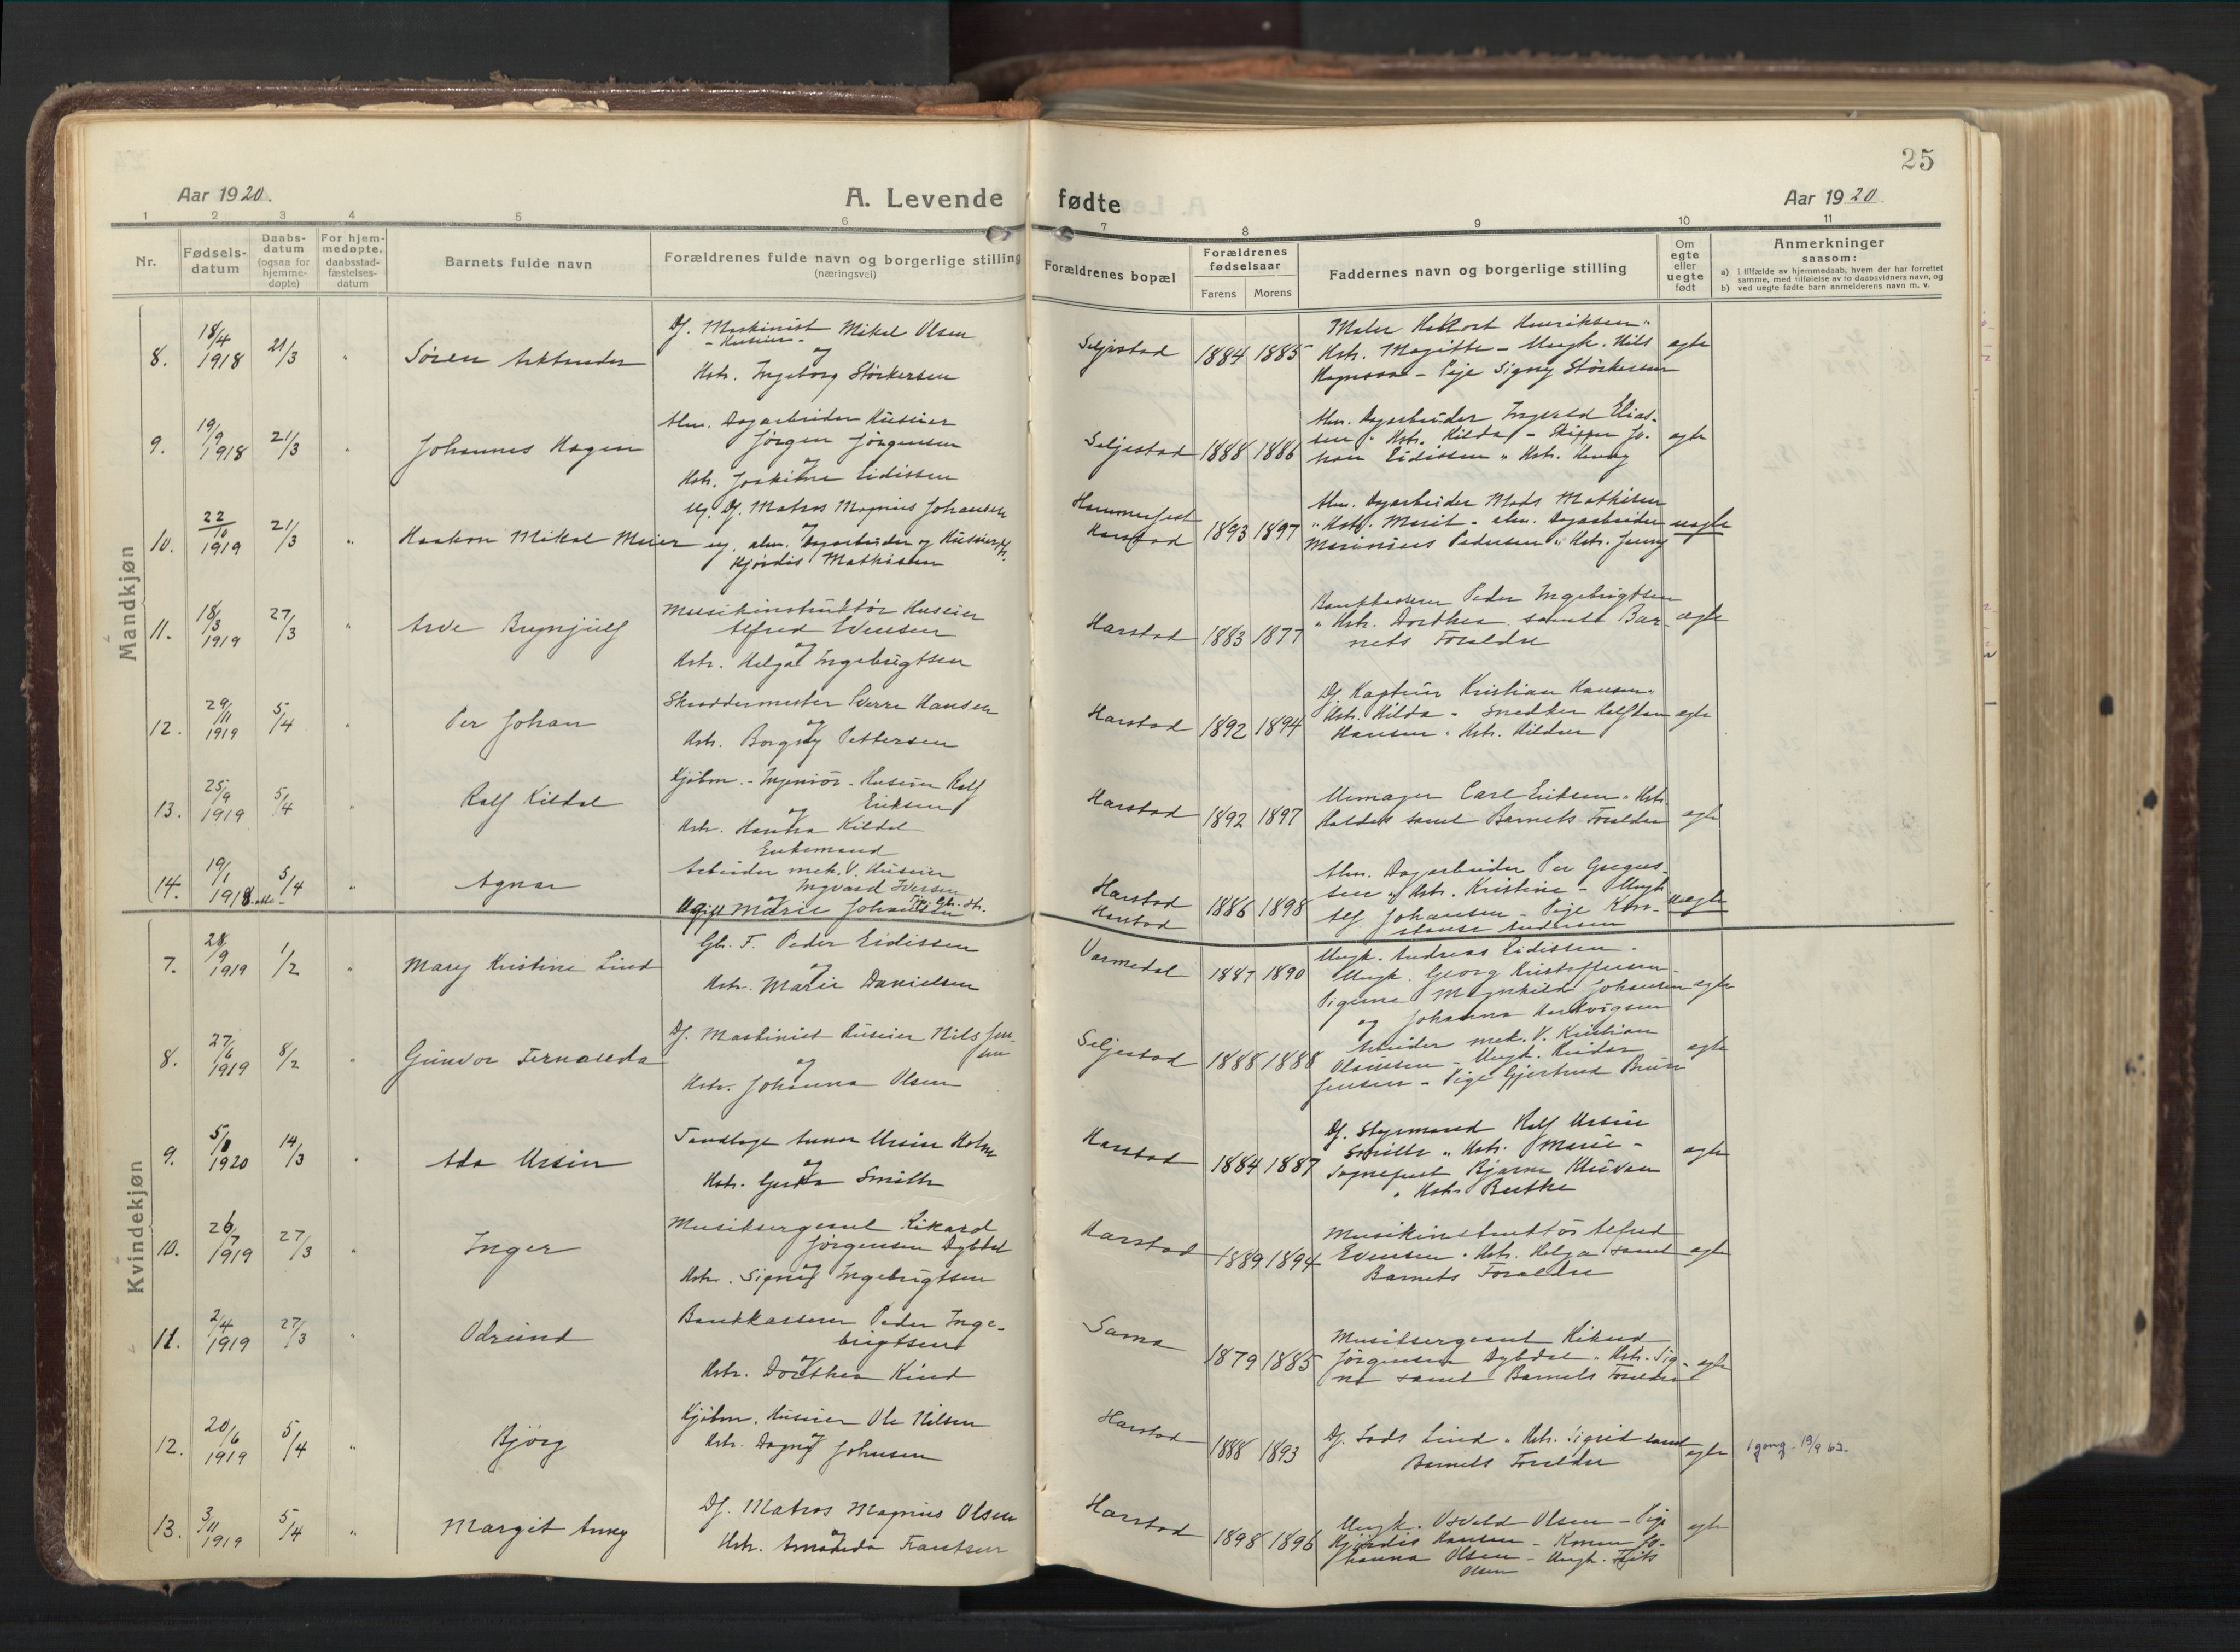 25
Aar 1920.
A. Levende fødte
Aar 1920.
1 2 3 4 5 6 7 8 9 10 11
Nr.
Fødselsdatum
Daabsdatum (ogsaa for hjemmedøpte)
For hjemmedøpte, daabsstadfæstelsesdatum
Barnets fulde navn
Forældrenes fulde navn og borgerlige stilling
(næringsvei)
Forældrenes bopæl
Forældrenes fødselsaar
Farens Morens
Faddernes navn og borgerlige stilling
Om egte eller uegte født
Anmerkninger
saasom:
a) i tilfælde av hjemmedaab, hvem der har forrettet
samme, med tilføielse av to daabsvidners navn, og
b) ved uegte fødte barn anmelderens navn m. v.
Mandkjøn
8. 18/4 1918 21/3 " Søren
Df. Maskinist Mikal Olsen
- Huseier -
og
Hstr. Ingeborg Störkersen
Seljestad 1884 1885
Maler Henriksen "
Hstr. Magitte - Ungk. Nils
- Pige Signy Störkersen
egte
9. 19/9 1918 21/3 " Johannes Hagin
Alm. Dagarbeider Huseier
Jørgen Jørgensen
og
Hstr. Joakime Eidissen
Seljestad 1888 1886
Alm. Dagarbeider Ingvald Elias-
sen " Hstr. Hilda - Skipper Jo-
han Eidissen " Hstr. Henny
egte
10. 22/10 1919 21/3 " Haakon Mikal Meier
Ug. Df. Matros Magnus Johansen
og
ug. alm. Dagarbeider og Huseier
Hjørdis Mathisen
Hammerfest
Harstad
1893 1897
Alm. Dagarbeider Mads Mathisen
" Hstr. Marit - alm. Dagarbeider
Marinius Pedersen " Hstr. Jenny
uegte
11. 18/3 1919 27/3 " Arve Brynjulf
Musikinstruktör Huseier
Alfred Evensen
og
Hstr. Helga Ingebrigtsen
Harstad 1883 1877
Bankkasserer Peder Ingebrigtsen
" Hstr. Dorthea samt Bar-
nets Forældre
egte
12. 29/11 1919 5/4 " Per Johan
Skræddermester Sverre Hansen
og
Hstr. Borgny Pettersen
Harstad 1892 1894
Df. Kaptein Kristian Hansen "
Hstr. Hilda - Snedker Halfdan
Hansen " Hstr. Hildur
egte
13. 25/9 1919 5/4 " Ralf Kildal
Kjöbm. - Ingeniör - Huseier Ralf
Eriksen
og
Hstr. Hanna Kildal
Harstad 1892 1897
Urmager Carl Eriksen " Hstr.
samt Barnets Forældre
egte
14. 19/1 1918 5/4 " Agnar
Enkemand
Arbeider mek. V. Huseier
Ingvard Iversen
og
Ugift Marie Johansen
Harstad
Harstad
1886 1898
Alm. Dagarbeider Per Gregus-
sen " Hstr. Kristine - Ungk.
Alf Johansen - Pige Kon-
stanse Andersen
uegte
Kvindekjøn
7. 28/9 1919 1/2 " Mary Kristine Lind
Gb. F. Peder Eidissen
og
Hstr. Marie Danielsen
Varmedal 1887 1890
Ungk. Andreas Eidissen -
Ungk. Georg Kristoffersen -
Pigerne Magnhild Johansen
og Johanna Hartvigsen
egte
8. 27/6 1919 8/2 " Gunvor Fernanda
Df. Maskinist Huseier Nils Jen-
sen
og
Hstr. Johanna Olsen
Seljestad 1888 1888
Arbeider mek. V. Kristian
- Ungk. Reidar
Jensen - Pige Gjertrud Bruun
egte
9. 5/1 1920 14/3 " Ada Ursin
Tandlæge Ursin Holm
og
Hstr. Gerda Smith
Harstad 1884 1887
Df. Styrmand Ralf Ursin
Smith " Hstr. Marie -
Sogneprest Bjarne
" Hstr. Berthe
egte
10. 26/7 1919 27/3 " Inger
Musiksergeant Rikard
Jørgensen Dybdal
og
Hstr. Signe Ingebrigtsen
Harstad 1889 1894
Musikinstruktör Alfred
Evensen " Hstr. Helga samt
Barnets Forældre
egte
11. 2/4 1919 27/3 " Odrund
Bankkasserer Peder Inge-
brigtsen
og
Hstr. Dorthea Kind
Sama 1879 1885
Musiksergeant Rikard
Jørgensen Dybdal " Hstr. Sig-
ne samt Barnets Forældre
egte
12. 20/6 1919 5/4 " Bjørg
Kjöbm. Huseier Ole Nilsen
og
Hstr. Dagny Johnsen
Harstad 1888 1893
Df. Lods Lind " Hstr. Sigrid samt
Barnets Forældre
egte
1 gang - 19/9 63.
13. 3/11 1919 5/4 " Margit Anny
Df. Matros Magnus Olsen
og
Hstr. Amanda Frantsen
Harstad 1898 1896
Ungk. Osvald Olsen - Pige
Hjørdis Hansen - Konen Jo-
hanna Olsen - Ungk.
Olsen
egte